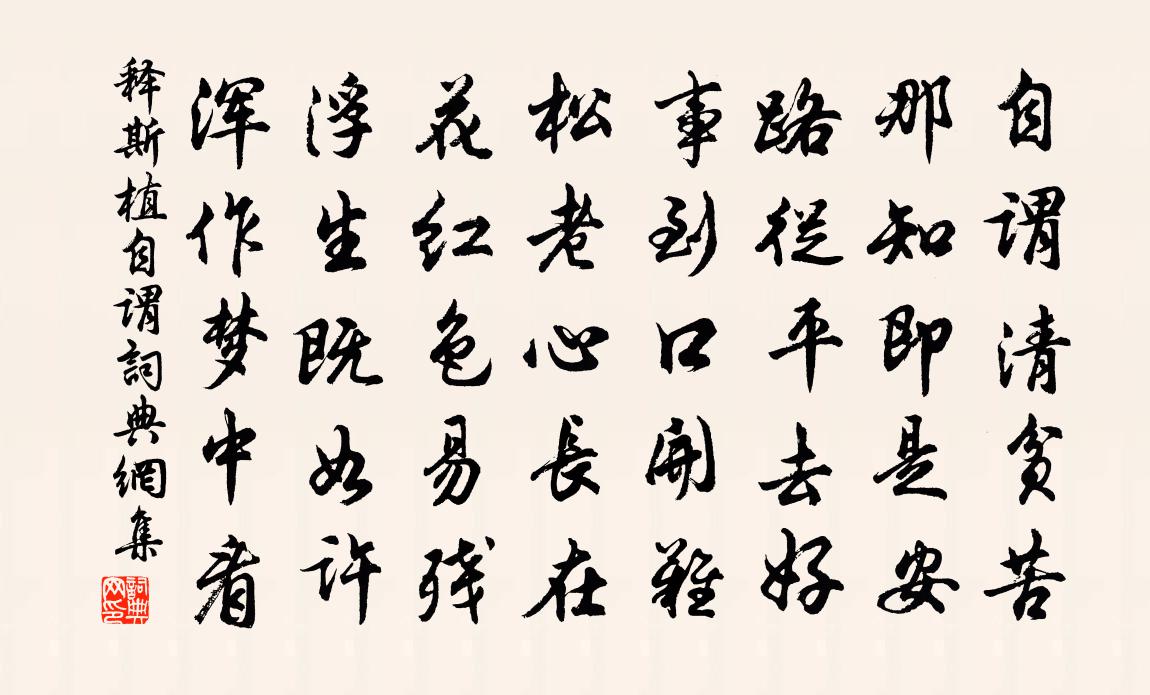 自谓清贫苦
那知即是安
路從平去好
事到口開難
松老心長在
花红色易残
浮生既如许
浑作梦中看
释斯植自谓詞典網集
詞典
网印